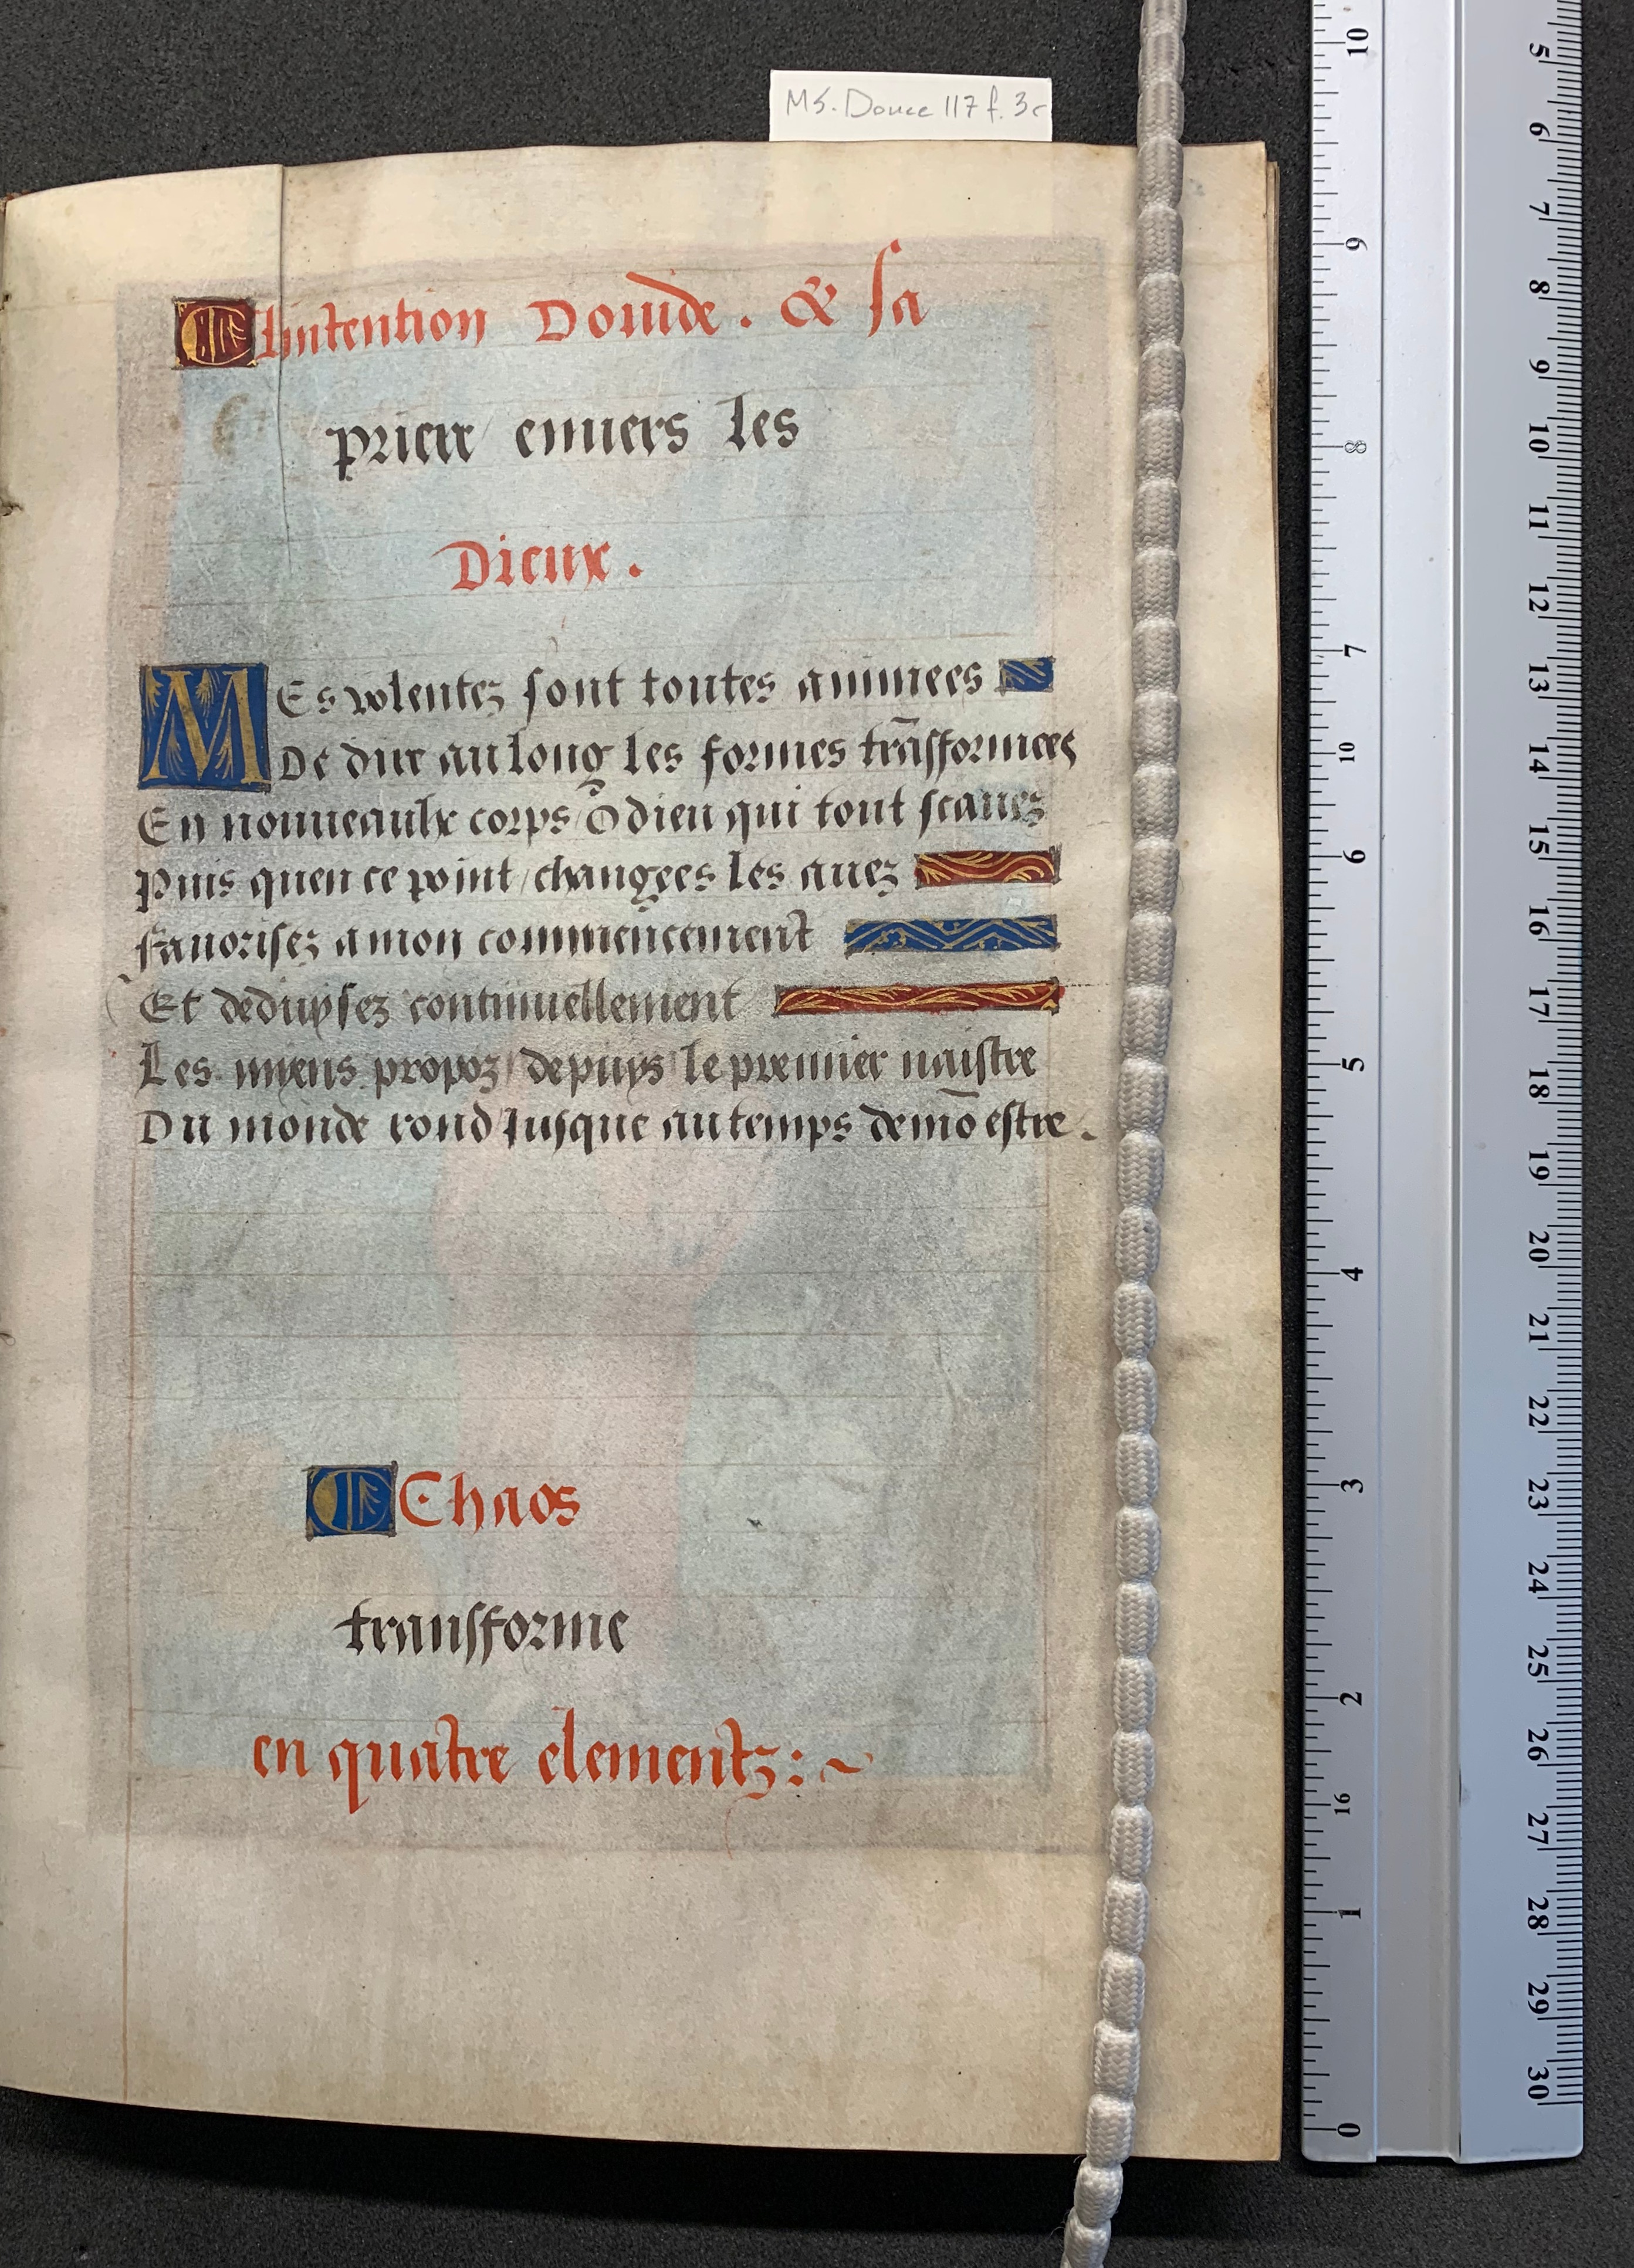 MS. Douce 117 f. 3r
¶ Lintention Douide. & sa
priere enuers les
Dieux.
MEs volentez sont toutes animees
De dire au long les formes trāsformees
En nouueaulx corps / o dieu qui tout scauez
Puis quen ce point / changees les auez
fauorisez a mon commencement
Et deduysez continuellement
Les myens propoz / depuys le premier naistre
Du monde rond Jusque au temps de mō estre.
¶ Chaos
transforme
en quatre elementz : ~
10 9 8 7 6 5 4 3 2 1 0
10 16
5 6 7 8 9 10 11 12 13 14 15 16 17 18 19 20 21 22 23 24 25 26 27 28 29 30